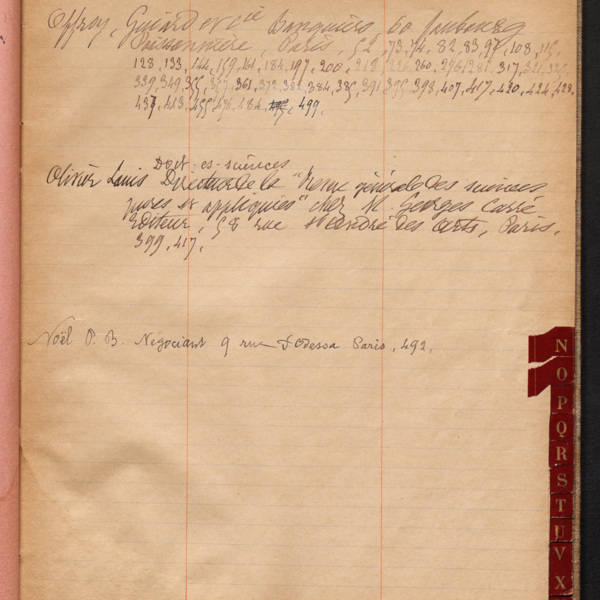 Offroy, Guiard et Cie Banquiers 60 faubourg
Poissonnière, Paris, 52, 73, 74, 82, 83, 97, 108, 115,
128, 133, 144, 159, 161, 184, 197, 200, 218, 226, 260, 276, 281, 317, 321,
339, 349, 361, 372, 384, 391, 393, 407, 417, 420, 424, 428,
437, 443, 455, 484, 499.
Doct-es-sciences
Olivier Louis Directeur de la "Revue générale des sciences
pures et appliquées" chez M. Georges Carré
Editeur, 58 rue St André des Arts, Paris.
399, 417.
Noël P. B. Négociant 9 rue d'Odessa Paris, 492.
N
O
P
Q
R
S
T
U
V
X